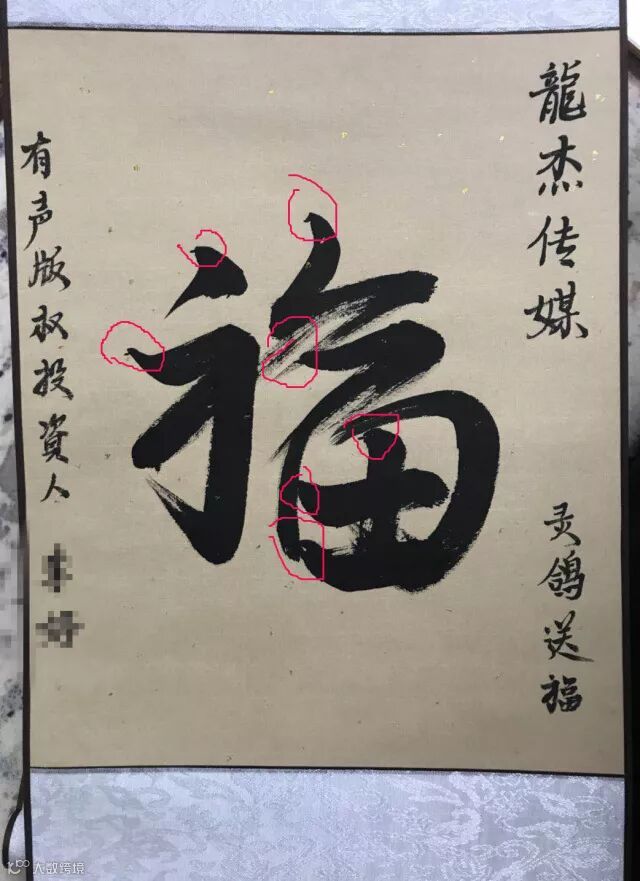 龍杰传媒
灵鸽送福
福
有声版权投資人
大数跨境